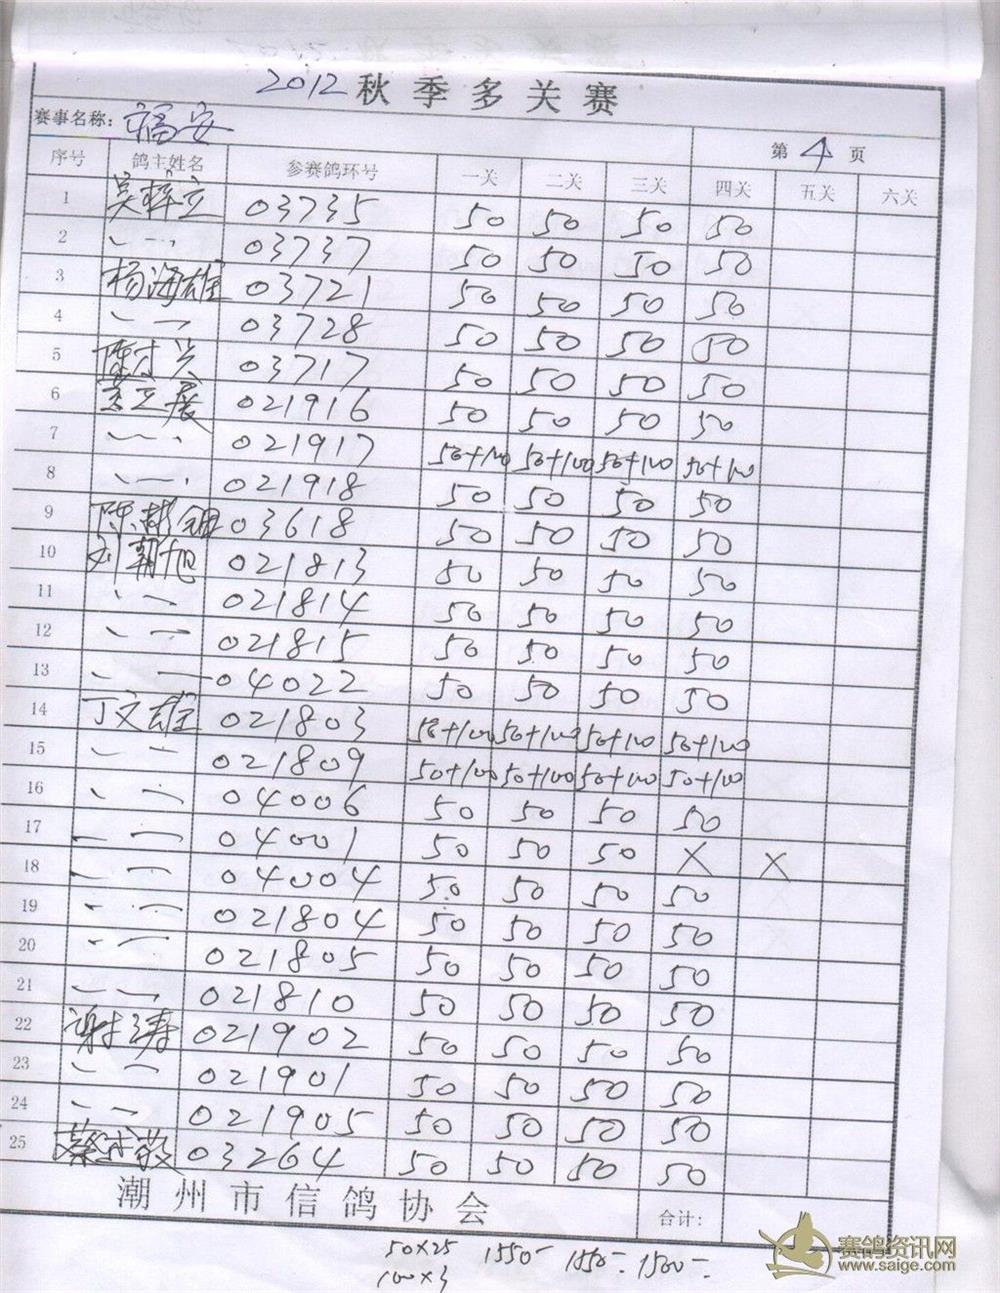 2012 秋季多关赛
赛事名称: 福安 第 4 页
序号 鸽主姓名 参赛鸽环号 一关 二关 三关 四关 五关 六关
1 吴梓立 03735 50 50 50 50
2 〃 03737 50 50 50 50
3 杨海雄 03721 50 50 50 50
4 〃 03728 50 50 50 50
5 陈才兴 03717 50 50 50 50
6 立展 021916 50 50 50 50
7 〃 021917 50+100 50+100 50+100 50+100
8 〃 021918 50 50 50 50
9 陈 03618 50 50 50 50
10 刘朝旭 021813 50 50 50 50
11 〃 021814 50 50 50 50
12 〃 021815 50 50 50 50
13 〃 04022 50 50 50 50
14 丁文雄 021803 50+100 50+100 50+100 50+100
15 〃 021809 50+100 50+100 50+100 50+100
16 〃 04006 50 50 50 50
17 〃 04001 50 50 50 X X
18 〃 04004 50 50 50 50
19 〃 021804 50 50 50 50
20 〃 021805 50 50 50 50
21 〃 021810 50 50 50 50
22 谢涛 021902 50 50 50 50
23 〃 021901 50 50 50 50
24 〃 021905 50 50 50 50
25 蔡 03264 50 50 50 50
潮州市信鸽协会 合计:
50×25 1550- 1550- 1500-
100×3
赛鸽资讯网
www.saige.com